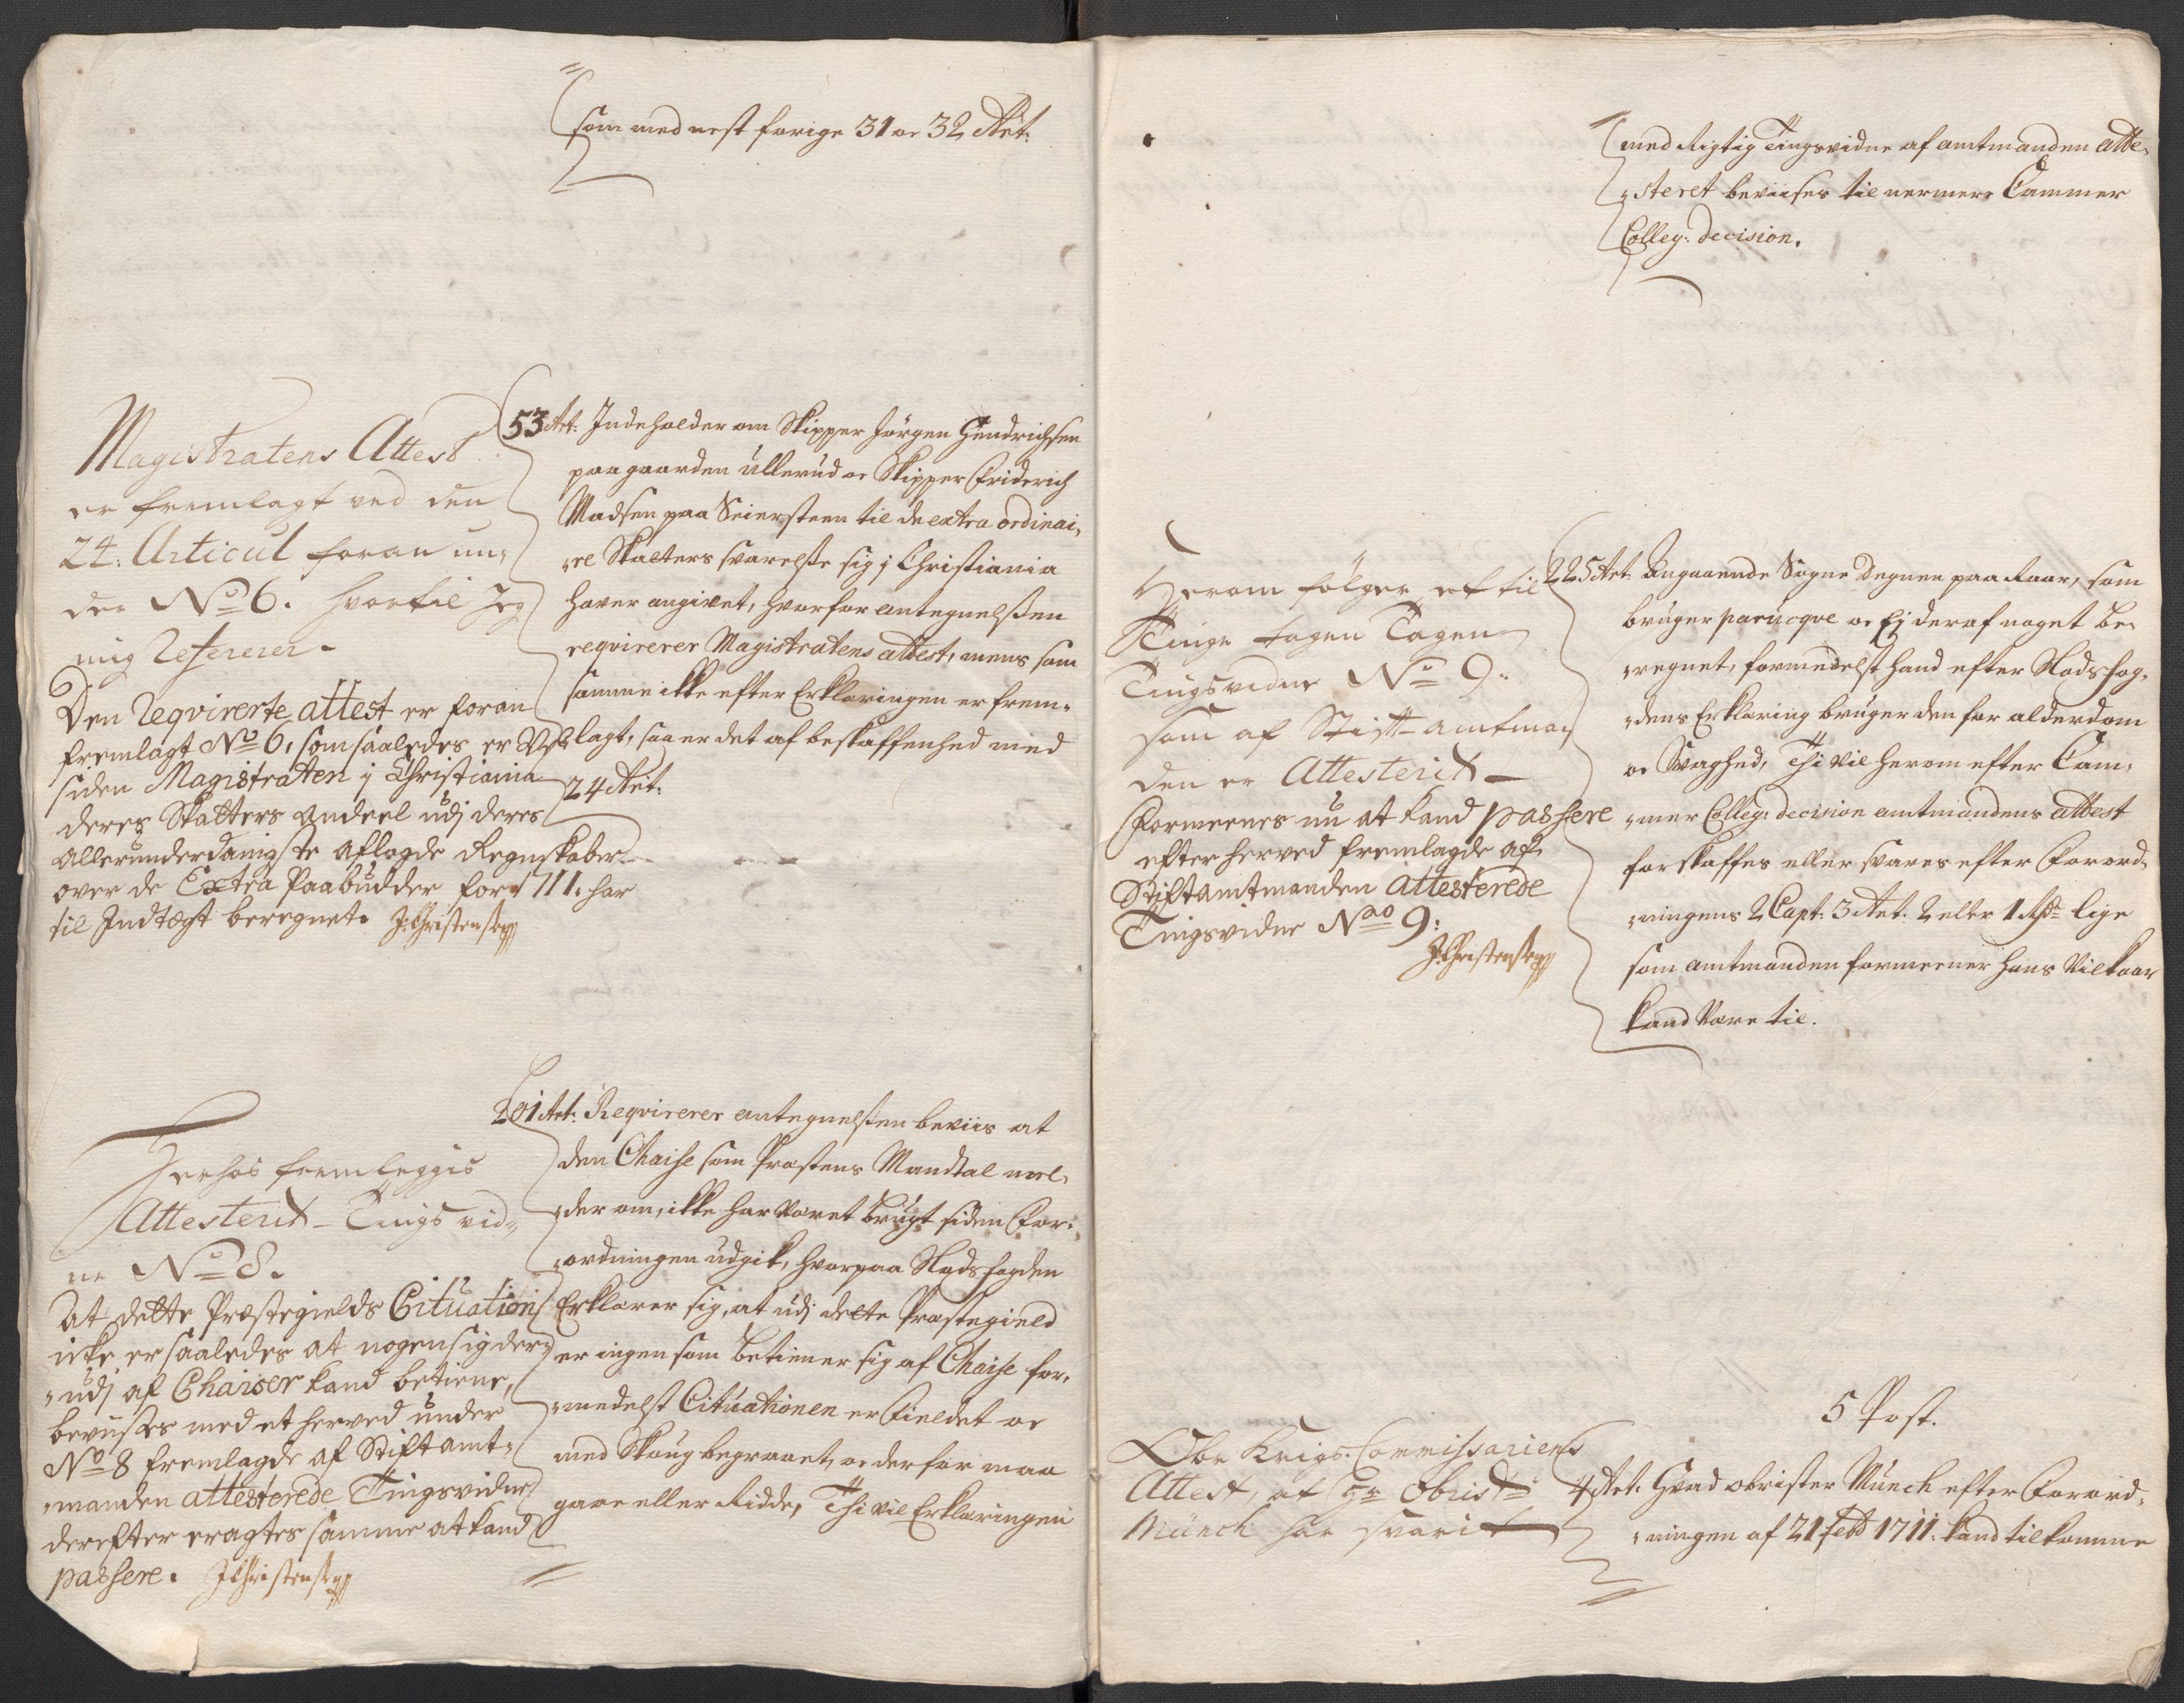 som med nest forige 31 oc 32 Art:
Magistratens Attest
er fremlagt ved den
24: Articul foran un-
der No 6. hvortil Jeg
mig Refererer.
Den Reqvirerte attest er foran
fremlagt No 6, som saaledes er
siden Magistraten j Christiania
deres Skatters Andeel udj deres
allerunderdanigste aflagde Regnskaber
over de Extra Paabudder for 1711. har
til Indtægt beregnet. J: Christensen
53 Art: Indeholder om Skipper Jørgen Hendrichsen
paa gaarden Ullerud oc Skipper Friderich
Madsen paa Seiersteen til de extra ordinai-
re Skatters svarelse sig j Christiania
haver angivet, hvorfor antegnelssen
reqvirerer Magistratens attest, mens som
samme ikke efter Erklæringen er frem-
lagt, saa er det af beskaffenhed med
24 Art:
Herhos fremlegges
Attesterit Tings vid-
ne No 8.
At dette Præstegields Cituation
icke er saaledes at nogen sig der-
udj af Chaiser kand betiene,
bevises med et herved under
No 8 fremlagde af Stiftamt-
manden attesterede Tingsvidne
derefter eragtes samme at kand
passere. J Christensen
201 Art: Reqvirerer antegnelssen beviis at
den Chaise som Præstens Mandtal mel-
der om, ikke har været brugt siden For-
ordningen udgik, hvorpaa Stedsfogden
Erklærer sig, at udj dette Præstegield
er ingen som betiener sig af Chaise for-
medelst Cituationen er Fieldet oc
med Skoug begroet, oc derfor maa
gaae eller Ridde, Thi vil Erklæringen
med Rigtig Tingsvidne af amtmanden atte-
steret beviises til nermere Cammer
Colleg: decision.
Herom følger et til
Tinge tagen
Tingsvidne No 9.
som af Stift-amtman
den er Attesterit
Formeenes nu at kand passere
efter herved fremlagde af
Stiftamtmanden attesterede
Tingsvidne No 9:
J: Christensen
225 Art: Angaaende Sogne Degnen paa Raar, som
bruger parucqve oc Ej deraf noget be-
regnet, formedelst hand efter Stedsfog-
dens Erklæring bruger den for alderdom
oc Svaghed, Thi vil herom efter Cam-
mer Colleg: decision amtmandens attest
forskaffes eller svares efter Forord-
ningens 2 Capt: 3 Art. 2 eller 1 Rdr lige
som amtmanden formeener hans Vilkaar
kand være til.
5 Post.
Obr Krigs Commissariens
Attest, at Hr Obrist
Münch har svarit
4 Art. Hvad obrister Münch efter Forord-
ningen af 21 Feb 1711. kand tilkomme